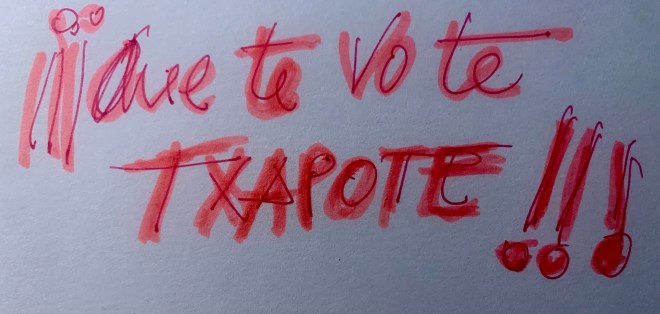 ¡¡¡Que te vote
TXAPOTE!!!